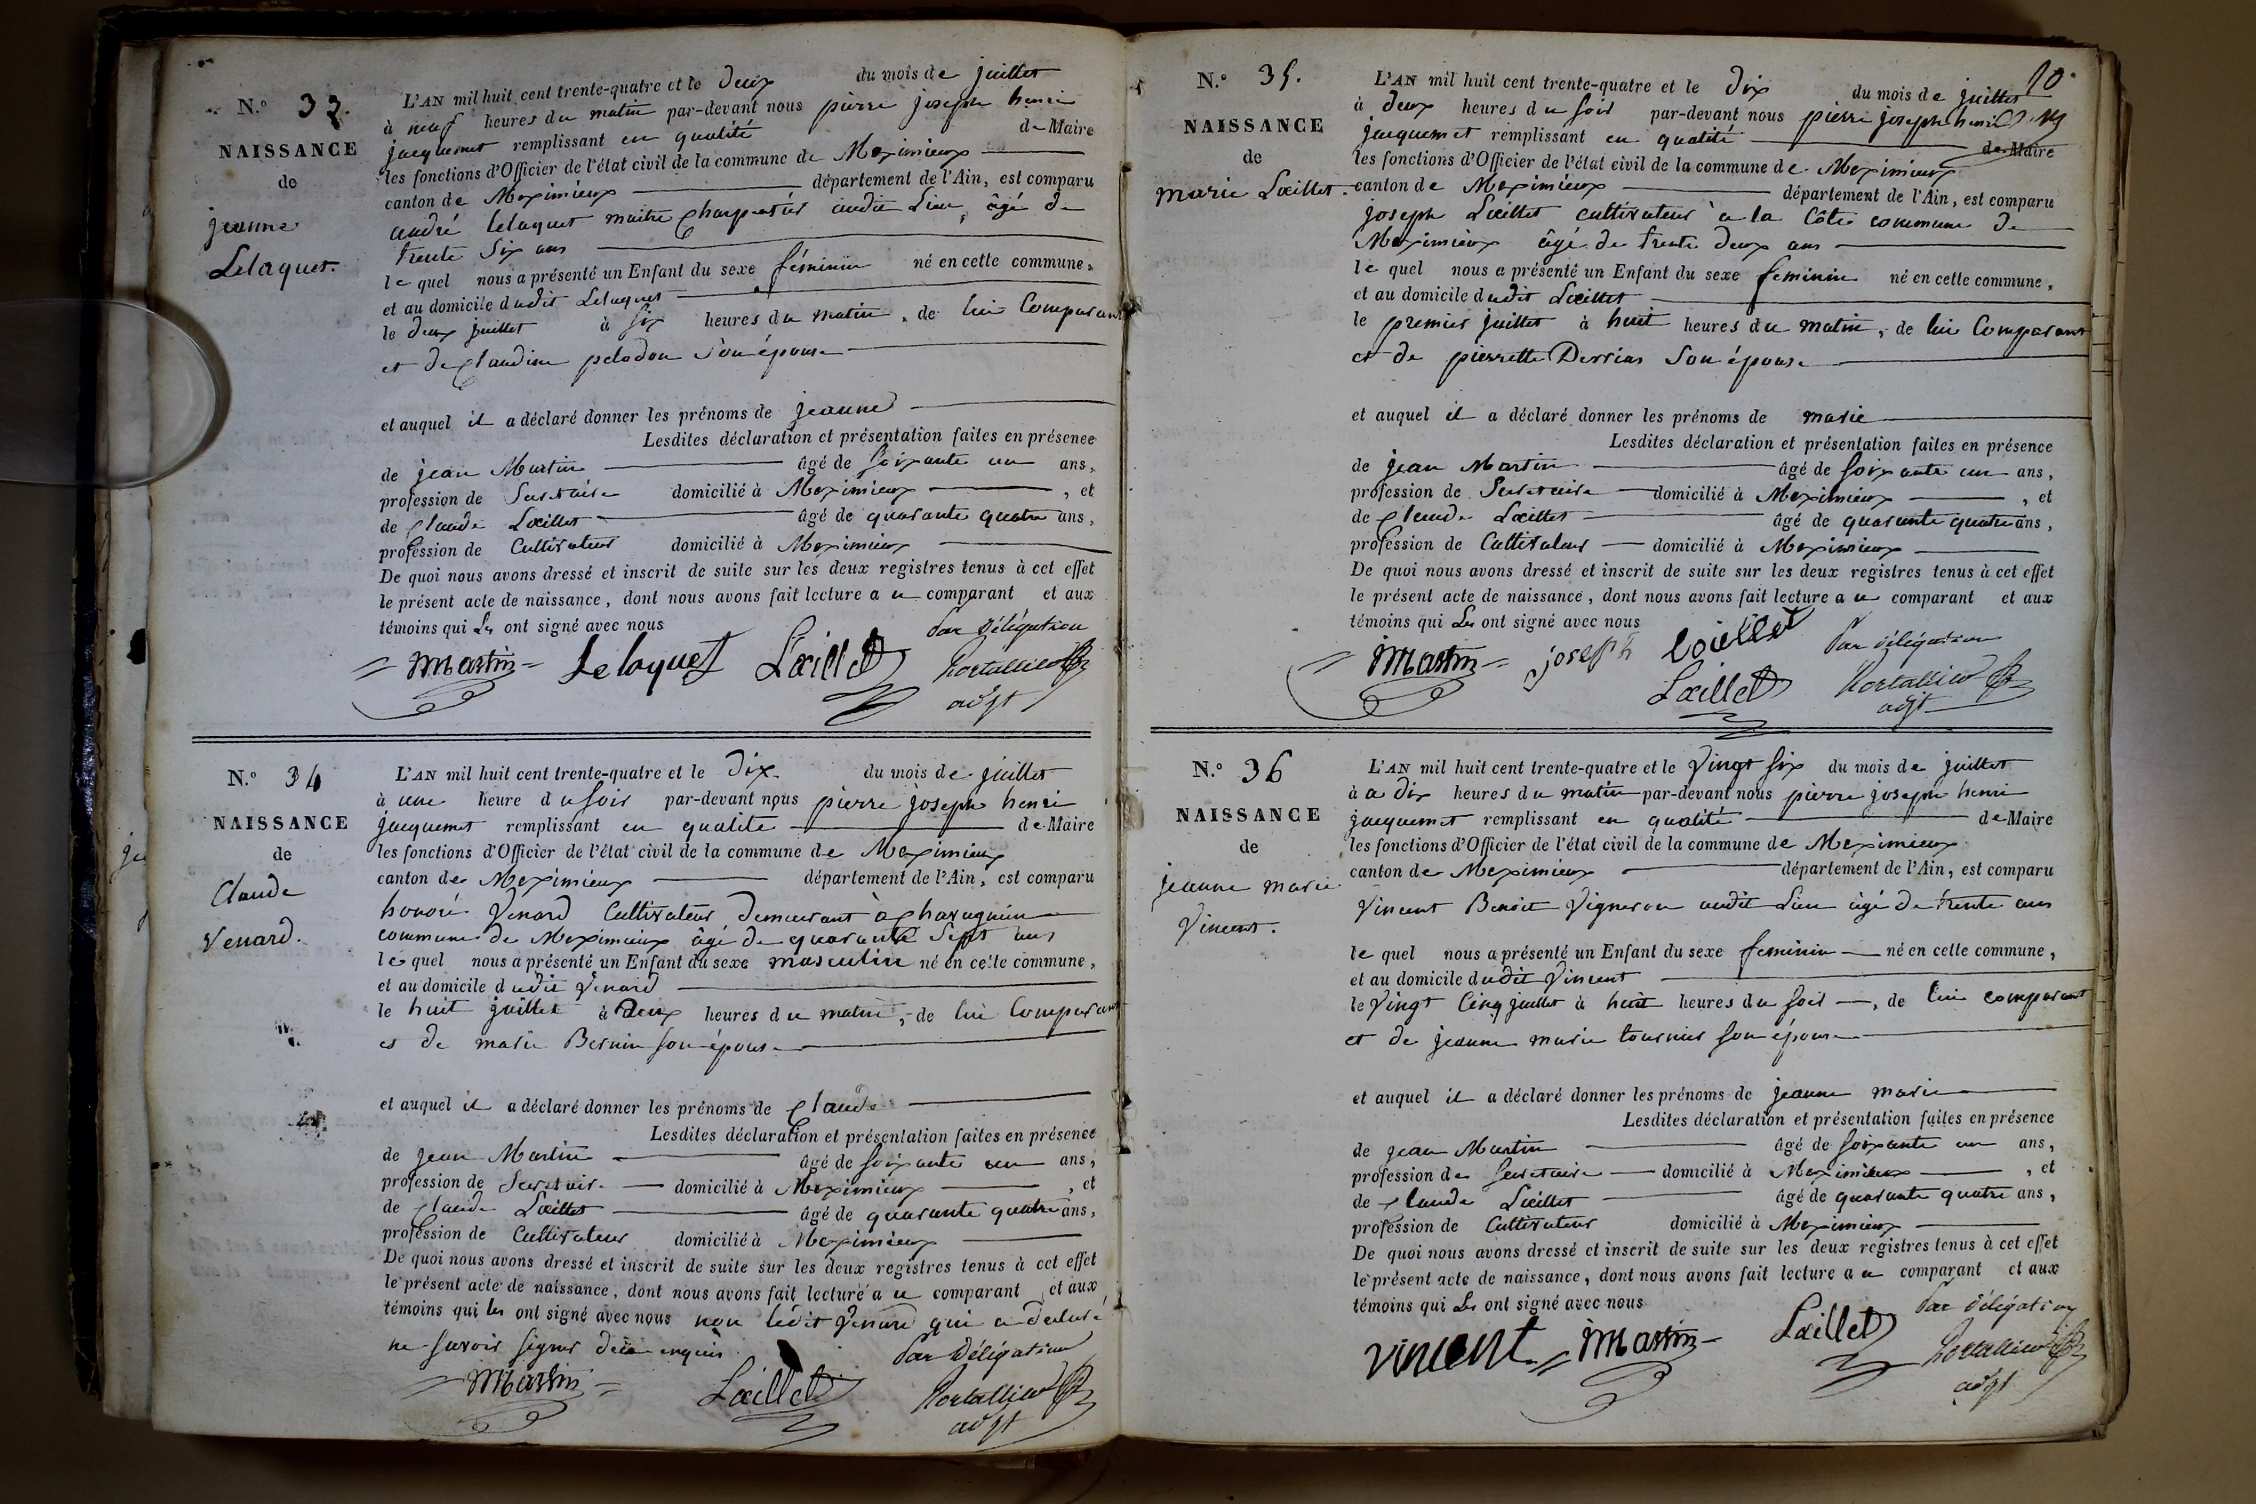 N.º 33.
NAISSANCE
de
jeanne
Lelaquet.
L'AN mil huit cent trente-quatre et le deux du mois de juillet
à neuf heures du matin par-devant nous pierre joseph henri
jacquemet remplissant en qualité de Maire
les fonctions d'Officier de l'état civil de la commune de Meximieux
canton de Meximieux département de l'Ain, est comparu
andré Lelaquet maitre charpentier audit Lieu, âgé de
trente Six ans
le quel nous a présenté un Enfant du sexe féminin né en cette commune,
et au domicile dudit Lelaquet
le deux juillet à Six heures du matin, de lui Comparant
et de Claudine peladon Son épouse
et auquel il a déclaré donner les prénoms de jeanne
Lesdites déclaration et présentation faites en présence
de jean Martin âgé de Soixante un ans,
profession de Secretaire domicilié à Meximieux, et
de Claude Lœillet âgé de quarante quatre ans,
profession de Cultivateur domicilié à Meximieux
De quoi nous avons dressé et inscrit de suite sur les deux registres tenus à cet effet
le présent acte de naissance, dont nous avons fait lecture au comparant et aux
témoins qui Les ont signé avec nous
Par Délégation
Martin Lelaquet Lœillet Portallier
adjt
N.º 34
NAISSANCE
de
Claude
Venard.
L'AN mil huit cent trente-quatre et le dix du mois de juillet
à une heure du Soir par-devant nous pierre joseph henri
jacquemet remplissant en qualité de Maire
les fonctions d'Officier de l'état civil de la commune de Meximieux
canton de Meximieux département de l'Ain, est comparu
honoré Venard Cultivateur demeurant à
commune de Meximieux âgé de quarante Sept ans
le quel nous a présenté un Enfant du sexe masculin né en cette commune,
et au domicile dudit Venard
le huit juillet à Deux heures du matin, de lui Comparant
et de marie Bernin Son épouse
et auquel il a déclaré donner les prénoms de Claude
Lesdites déclaration et présentation faites en présence
de jean Martin âgé de Soixante un ans,
profession de Secretaire domicilié à Meximieux, et
de Claude Lœillet âgé de quarante quatre ans,
profession de Cultivateur domicilié à Meximieux
De quoi nous avons dressé et inscrit de suite sur les deux registres tenus à cet effet
le présent acte de naissance, dont nous avons fait lecture au comparant et aux
témoins qui les ont signé avec nous non ledit Venard qui a déclaré
ne Savoir Signer de ce enquis
Par Délégation
Martin Lœillet Portallier
adjt
10.
N.º 35.
NAISSANCE
de
marie Lœillet.
L'AN mil huit cent trente-quatre et le Dix du mois de juillet
à deux heures du Soir par-devant nous pierre joseph henri
jacquemet remplissant en qualité de Maire
les fonctions d'Officier de l'état civil de la commune de Meximieux
canton de Meximieux département de l'Ain, est comparu
joseph Lœillet cultivateur à la Côte commune de
Meximieux âgé de trente deux ans
le quel nous a présenté un Enfant du sexe feminin né en cette commune,
et au domicile dudit Lœillet
le premier juillet à huit heures du matin, de lui Comparant
et de pierrette Derrias Son épouse
et auquel il a déclaré donner les prénoms de marie
Lesdites déclaration et présentation faites en présence
de jean Martin âgé de Soixante un ans,
profession de Secretaire domicilié à Meximieux, et
de Claude Lœillet âgé de quarante quatre ans,
profession de Cultivateur domicilié à Meximieux
De quoi nous avons dressé et inscrit de suite sur les deux registres tenus à cet effet
le présent acte de naissance, dont nous avons fait lecture au comparant et aux
témoins qui Les ont signé avec nous
Par délégation
Martin joseph loeillet
Lœillet Portallier
adjt
N.º 36
NAISSANCE
de
jeanne marie
Vincent.
L'AN mil huit cent trente-quatre et le Vingt Six du mois de juillet
à a dix heures du matin par-devant nous pierre joseph henri
jacquemet remplissant en qualité de Maire
les fonctions d'Officier de l'état civil de la commune de Meximieux
canton de Meximieux département de l'Ain, est comparu
Vincent Benoit Vigneron audit Lieu âgé de trente ans
le quel nous a présenté un Enfant du sexe feminin né en cette commune,
et au domicile dudit Vincent
le Vingt Cinq juillet à huit heures du Soir, de lui comparant
et de jeanne marie tournier Son épouse
et auquel il a déclaré donner les prénoms de jeanne marie
Lesdites déclaration et présentation faites en présence
de jean Martin âgé de Soixante un ans,
profession de Secretaire domicilié à Meximieux, et
de Claude Lœillet âgé de quarante quatre ans,
profession de Cultivateur domicilié à Meximieux
De quoi nous avons dressé et inscrit de suite sur les deux registres tenus à cet effet
le présent acte de naissance, dont nous avons fait lecture au comparant et aux
témoins qui Les ont signé avec nous
Par délégation
vincent Martin Lœillet Portallier
adjt